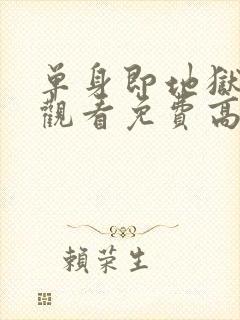 單身即地獄
觀看免費高
賴荣生